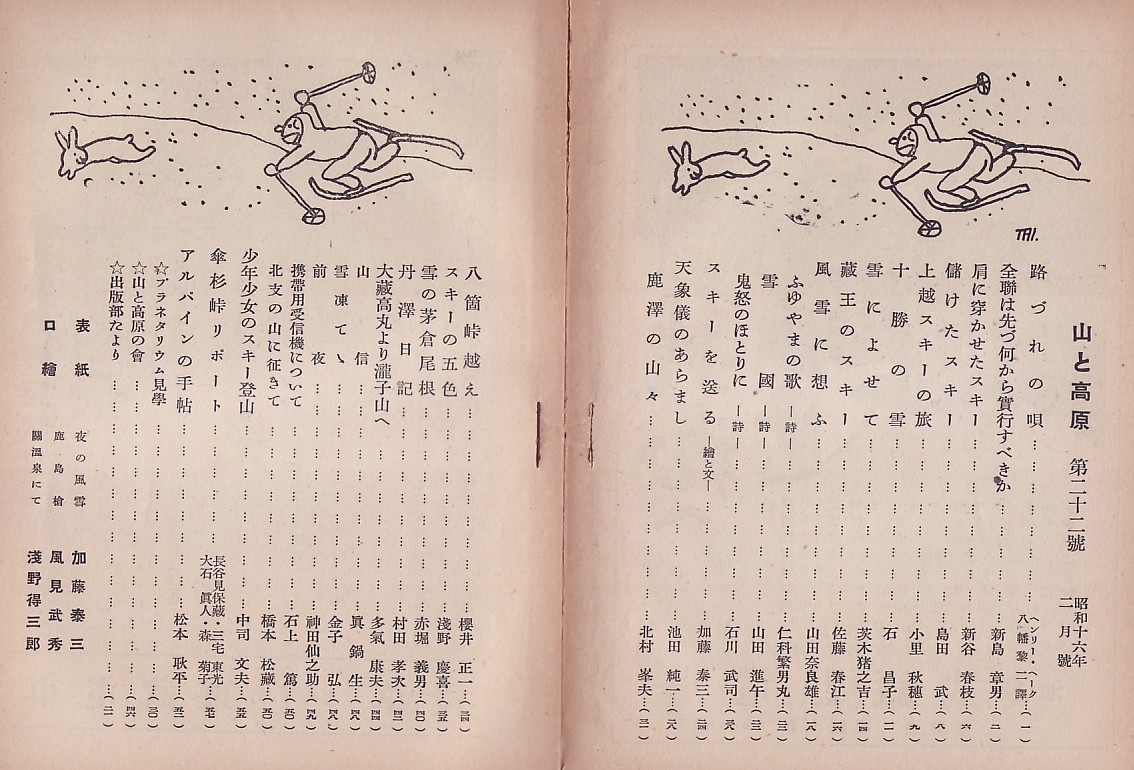 TAI.
山と高原 第二十二號 昭和十六年二月號
路づれの唄………ヘンリー・ヘーク 八幡黎二譯…(一)
全聯は先づ何から實行すべきか………新島章男…(二)
肩に穿かせたスキー………新谷春枝…(六)
儲けたスキー………島田武…(八)
上越スキーの旅………小里秋穂…(九)
十勝の雪………石昌子…(一一)
雪によせて………茨木猪之吉…(一四)
藏王のスキー………佐藤春江…(一六)
風雪に想ふ………山田奈良雄…(一八)
ふゆやまの歌―詩―………仁科繁男丸…(二三)
雪國―詩―………山田進午…(二三)
鬼怒のほとりに―詩―………石川武司…
スキーを送る―繪と文―………加藤泰三…(二四)
天象儀のあらまし………池田純一…(二八)
鹿澤の山々………北村峯夫…(三一)
八箇峠越え………櫻井正一…(三四)
スキーの五色………淺野慶喜…
雪の茅倉尾根………赤堀義男…(四〇)
丹澤日記………村田孝次…(四二)
大藏高丸より瀧子山へ………多氣康夫…(四四)
山信………眞鍋生…
雪凍てゝ………金子弘…(四八)
前夜………神田仙之助…(四九)
携帶用受信機について………石上篤…(五〇)
北支の山に征きて………橋本松藏…(五〇)
少年少女のスキー登山………中司文夫…
傘杉峠リポート 長谷見保藏・三宅東光 大石眞人・森菊子…(五七)
アルパインの手帖………松本耿平…(五二)
☆プラネタリウム見學………(三〇)
☆山と高原の會………(四六)
☆出版部たより………(二一)
表紙 夜の風雪 加藤泰三
口繪 鹿島槍 風見武秀
關溫泉にて 淺野得三郎